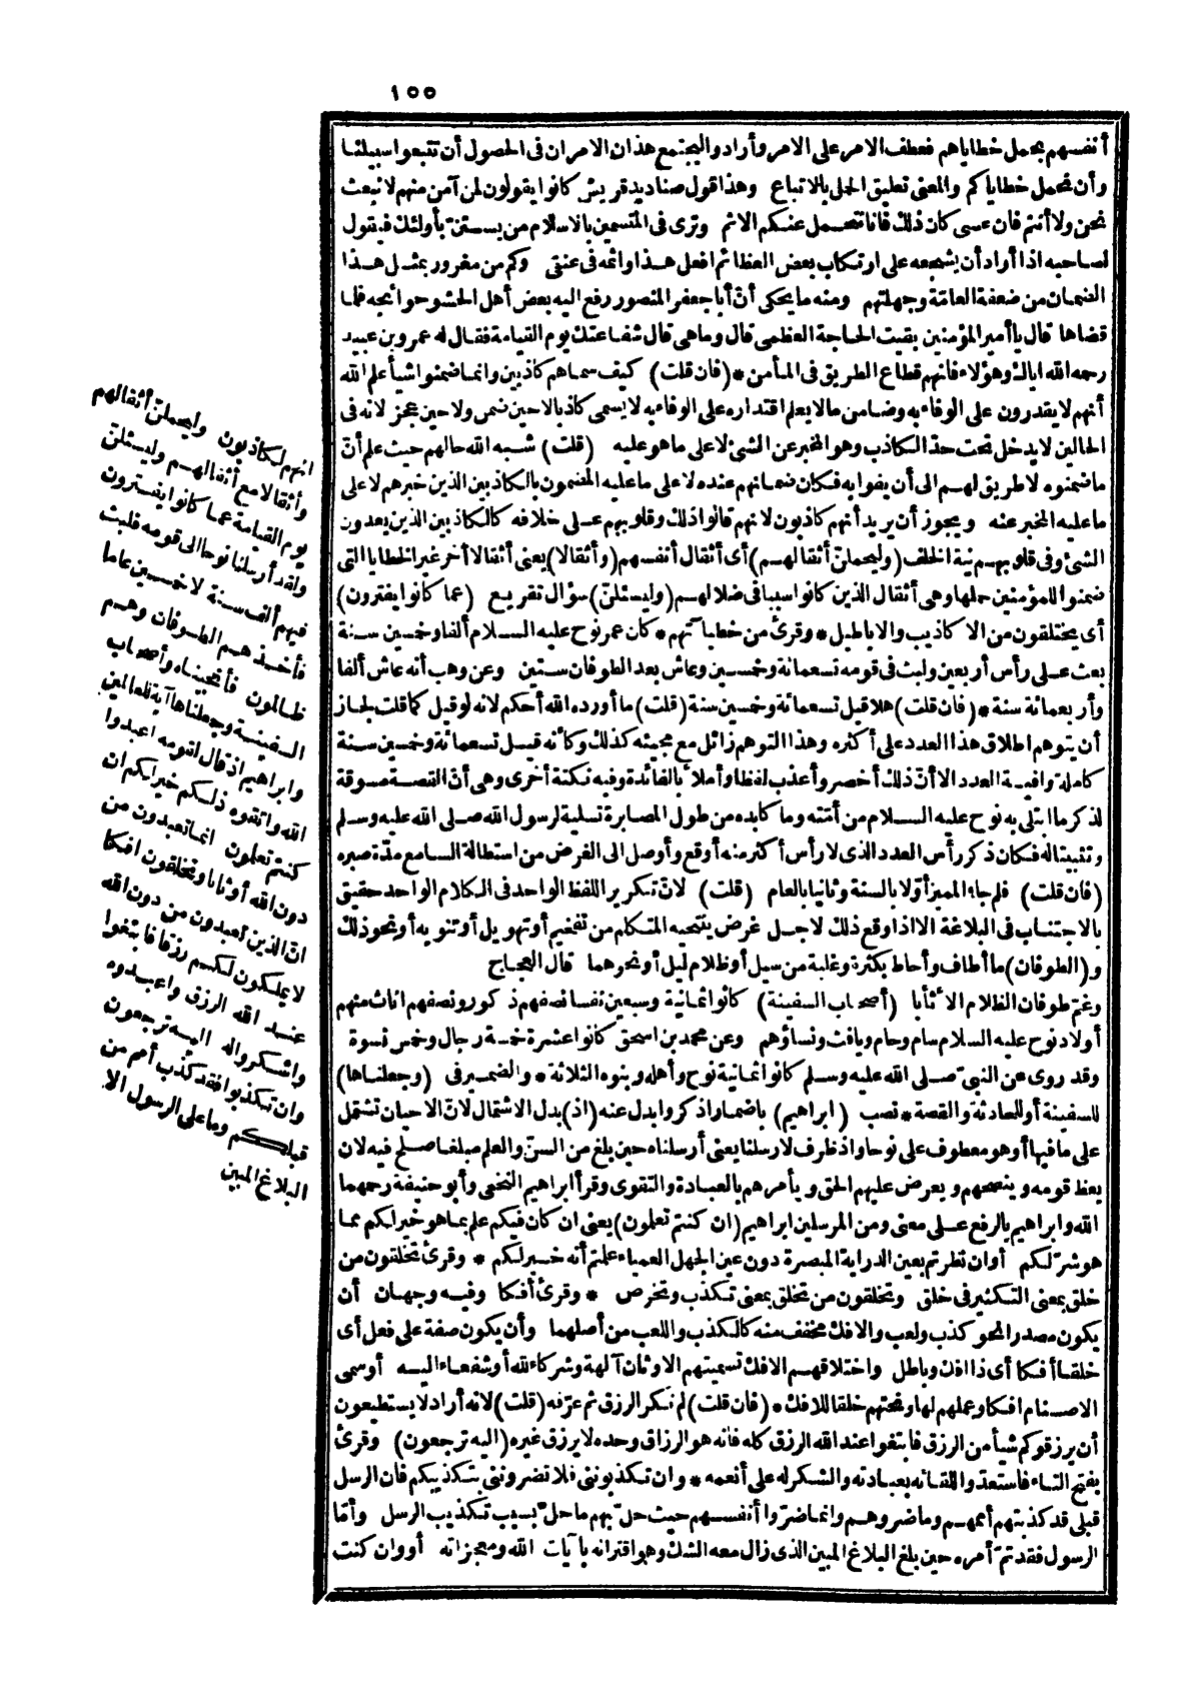 ١٥٥
أنفسهم بحمل خطاياهم فعطف الامر على الامر وأرادوا ليجتمع هذان الامران فى الحصول أن تتبعوا سبيلنا
وأن نحمل خطاياكم والمعنى تعليق الحمل بالاتباع وهذا قول صناديد قريش كانوا يقولون لمن آمن منهم لانبعث
نحن ولا أنتم فان عسى كان ذلك فانا نتحمل عنكم الاثم وترى فى المتسمين بالاسلام من يستنّ بأولئك فيقول
لصاحبه اذا أراد أن يشجعه على ارتكاب بعض العظائم افعل هذا واثمه فى عنقى وكم من مغرور بمثل هذا
الضمان من ضعفة العامّة وجهلتهم ومنه ما يحكى أنّ أبا جعفر المنصور رفع اليه بعض أهل الحشو حوائجه فلما
قضاها قال يا أمير المؤمنين بقيت الحاجة العظمى قال وما هى قال شفاعتك يوم القيامة فقال له عمرو بن عبيد
رحمه الله اياك وهؤلاء فانهم قطاع الطريق فى المأمن * (فان قلت) كيف سماهم كاذبين وانما ضمنوا شيأ علم الله
أنهم لا يقدرون على الوفاء به وضامن ما لا يعلم اقتداره على الوفاء به لا يسمى كاذبا لا حين ضمن ولا حين عجز لانه فى
الحالين لا يدخل تحت حدّ الكاذب وهو المخبر عن الشئ لا على ما هو عليه (قلت) شبه الله حالهم حيث علم أنّ
ما ضمنوه لا طريق لهم الى أن يفوا به فكان ضمانهم عنده لا على ما عليه المضمون بالكاذبين الذين خبرهم لا على
ما عليه المخبر عنه ويجوز أن يريد أنهم كاذبون لانهم قالوا ذلك وقلوبهم على خلافه كالكاذبين الذين يعدون
الشئ وفى قلوبهم نية الخلف (وليحملنّ أثقالهم) أى أثقال أنفسهم (وأثقالا) يعنى أثقالا أخر غير الخطايا التى
ضمنوا للمؤمنين حملها وهى أثقال الذين كانوا سببا فى ضلالهم (وليسئلنّ) سؤال تقريع (عما كانوا يفترون)
أى يختلقون من الاكاذيب والاباطيل * وقرئ من خطياتهم * كان عمر نوح عليه السلام ألفا وخمسين سنة
بعث على رأس أربعين ولبث فى قومه تسعمائة وخمسين وعاش بعد الطوفان ستين وعن وهب أنه عاش ألفا
وأربعمائة سنة * (فان قلت) هلا قيل تسعمائة وخمسين سنة (قلت) ما أورده الله أحكم لانه لو قيل كما قلت لجاز
أن يتوهم اطلاق هذا العدد على أكثره وهذا التوهم زائل مع مجيئه كذلك وكأنه قيل تسعمائة وخمسين سنة
كاملة وافية العدد الا أنّ ذلك أخصر وأعذب لفظا وأملأ بالفائدة وفيه نكتة أخرى وهى أنّ القصة مسوقة
لذكر ما ابتلى به نوح عليه السلام من أمّته وما كابده من طول المصابرة تسلية لرسول الله صلى الله عليه وسلم
وتثبيتا له فكان ذكر رأس العدد الذى لا رأس أكثر منه أوقع وأوصل الى الغرض من استطالة السامع مدّة صبره
(فان قلت) فلم جاء المميز أوّلا بالسنة وثانيا بالعام (قلت) لانّ تكرير اللفظ الواحد فى الكلام الواحد حقيق
بالاجتناب فى البلاغة الا اذا وقع ذلك لاجل غرض ينتحيه المتكلم من تفخيم أو تهويل أو تنويه أو نحو ذلك
و(الطوفان) ما أطاف وأحاط بكثرة وغلبة من سيل أو ظلام ليل أو نحوهما قال العجاج
وغمّ طوفان الظلام الاثأبا (أصحاب السفينة) كانوا ثمانية وسبعين نفسا نصفهم ذكور ونصفهم اناث منهم
أولاد نوح عليه السلام سام وحام ويافث ونساؤهم وعن محمد بن اسحق كانوا عشرة خمسة رجال وخمس نسوة
وقد روى عن النبىّ صلى الله عليه وسلم كانوا ثمانية نوح وأهله وبنوه الثلاثة * والضمير فى (وجعلناها)
للسفينة أو للحادثة والقصة * نصب (ابراهيم) باضمار اذكر وابدل عنه (اذ) بدل الاشتمال لانّ الاحيان تشتمل
على ما فيها أو هو معطوف على نوحا واذ ظرف لارسلنا يعنى أرسلناه حين بلغ من السنّ والعلم مبلغا صلح فيه لان
يعظ قومه وينصحهم ويعرض عليهم الحق ويأمرهم بالعبادة والتقوى وقرأ ابراهيم النخعى وأبو حنيفة رحمهما
الله وابراهيم بالرفع على معنى ومن المرسلين ابراهيم (ان كنتم تعلمون) يعنى ان كان فيكم علم بما هو خير لكم مما
هو شرّ لكم أو ان نظرتم بعين الدراية المبصرة دون عين الجهل العمياء علمتم أنه خير لكم * وقرئ تخلقون من
خلق بمعنى التكثير فى خلق وتخلقون من تخلق بمعنى تكذب وتخرص * وقرئ أفكا وفيه وجهان أن
يكون مصدرا نحو كذب ولعب والافك مخفف منه كالكذب واللعب من أصلهما وأن يكون صفة على فعل أى
خلقا أفكا أى ذا افك وباطل واختلاقهم الافك تسميتهم الاوثان آلهة وشركاء لله أو شفعاء اليه أو سمى
الاصنام افكا وعملهم لها ونحتهم خلقا للافك * (فان قلت) لم نكر الرزق ثم عرّفه (قلت) لانه أراد لا يستطيعون
أن يرزقوكم شيأ من الرزق فابتغوا عند الله الرزق كله فانه هو الرزاق وحده لا يرزق غيره (اليه ترجعون) وقرئ
بفتح التاء فاستعدّوا للقائه بعبادته والشكر له على أنعمه * وان تكذبوننى فلا تضروننى بتكذيبكم فان الرسل
قبلى قد كذبتهم أممهم وما ضروهم وانما ضرّوا أنفسهم حيث حلّ بهم ما حلّ بسبب تكذيب الرسل وأمّا
الرسول فقد تمّ أمره حين بلغ البلاغ المبين الذى زال معه الشك وهو اقترانه بآيات الله ومعجزاته أو وان كنت
انهم لكاذبون وليحملنّ أثقالهم
وأثقالا مع أثقالهم وليسئلنّ
يوم القيامة عما كانوا يفترون
ولقد أرسلنا نوحا الى قومه فلبث
فيهم ألف سنة الا خمسين عاما
فأخذهم الطوفان وهم
ظالمون فأنجيناه وأصحاب
السفينة وجعلناها آية للعالمين
وابراهيم اذ قال لقومه اعبدوا
الله واتقوه ذلكم خير لكم ان
كنتم تعلمون انما تعبدون من
دون الله أوثانا وتخلقون افكا
انّ الذين تعبدون من دون الله
لا يملكون لكم رزقا فابتغوا
عند الله الرزق واعبدوه
واشكروا له اليه ترجعون
وان تكذبوا فقد كذب أمم من
قبلكم وما على الرسول الا
البلاغ المبين